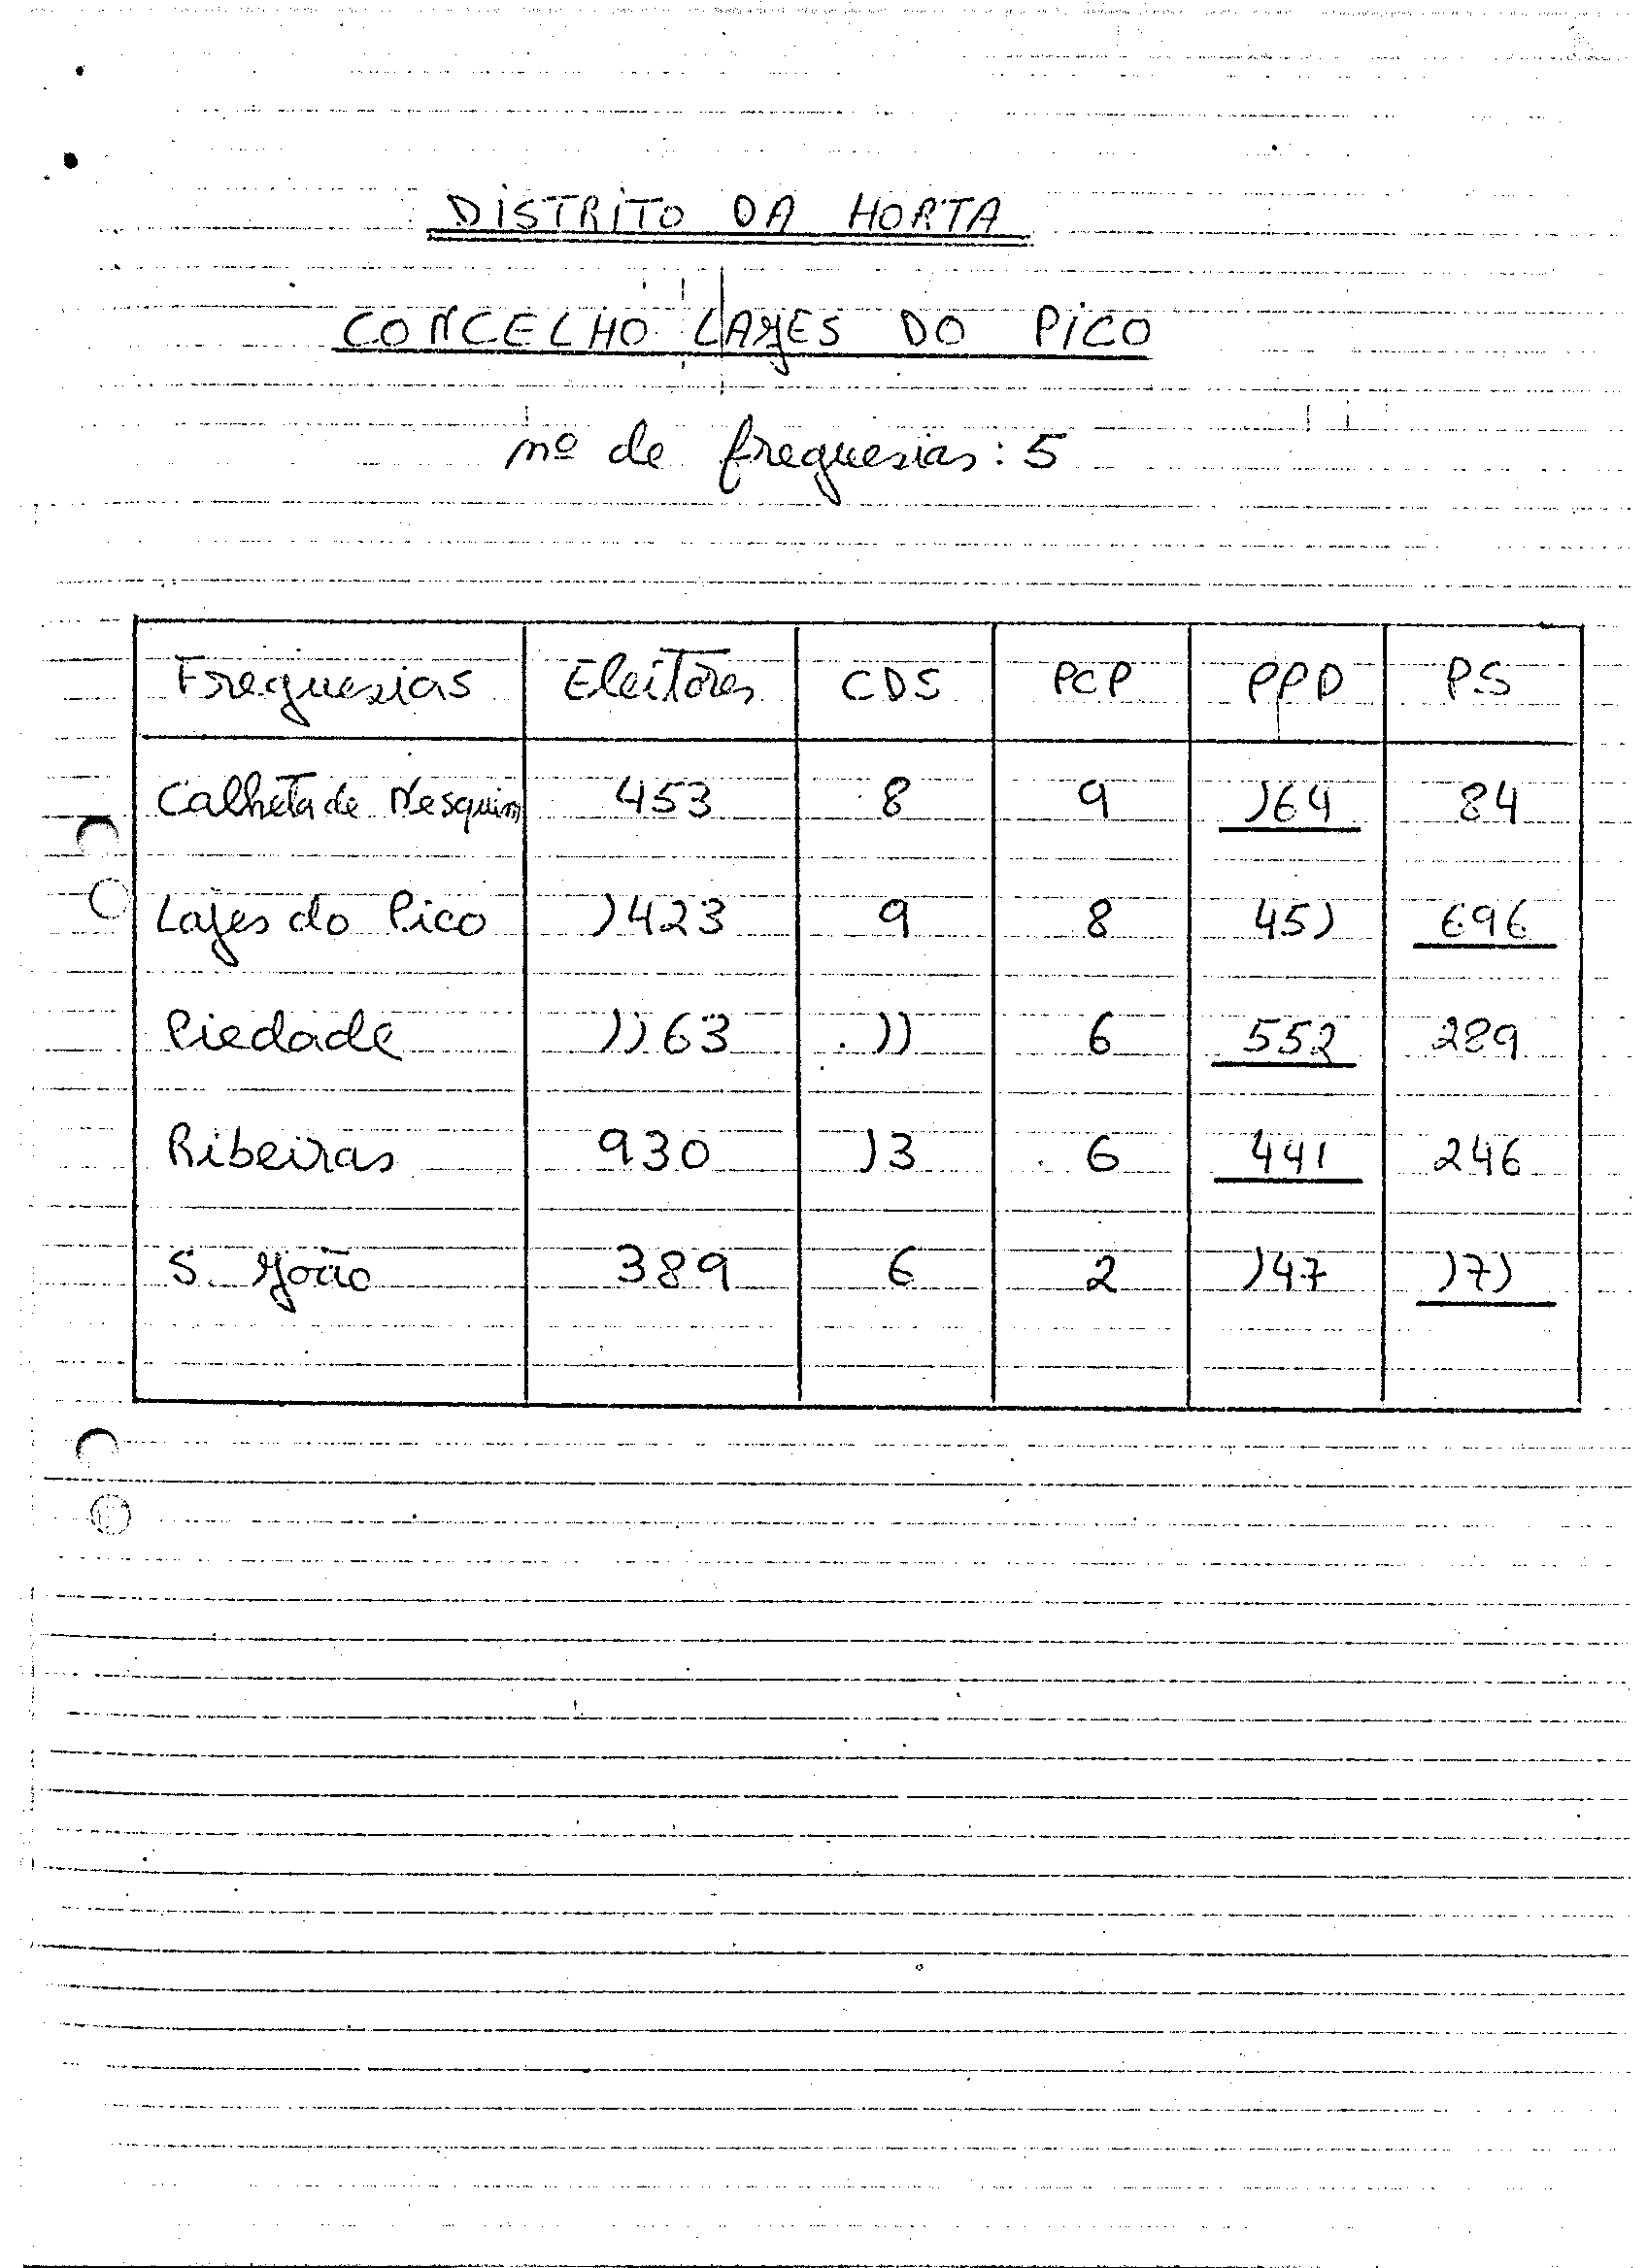 DISTRITO DA HORTA
CONCELHO LAJES DO PICO
nº de freguesias: 5
Freguesias Eleitores CDS PCP PPD PS
Calheta de Nesquim 453 8 9 164 84
Lajes do Pico 1423 9 8 451 696
Piedade 1163 11 6 552 289
Ribeiras 930 13 6 441 246
S. João 389 6 2 147 171